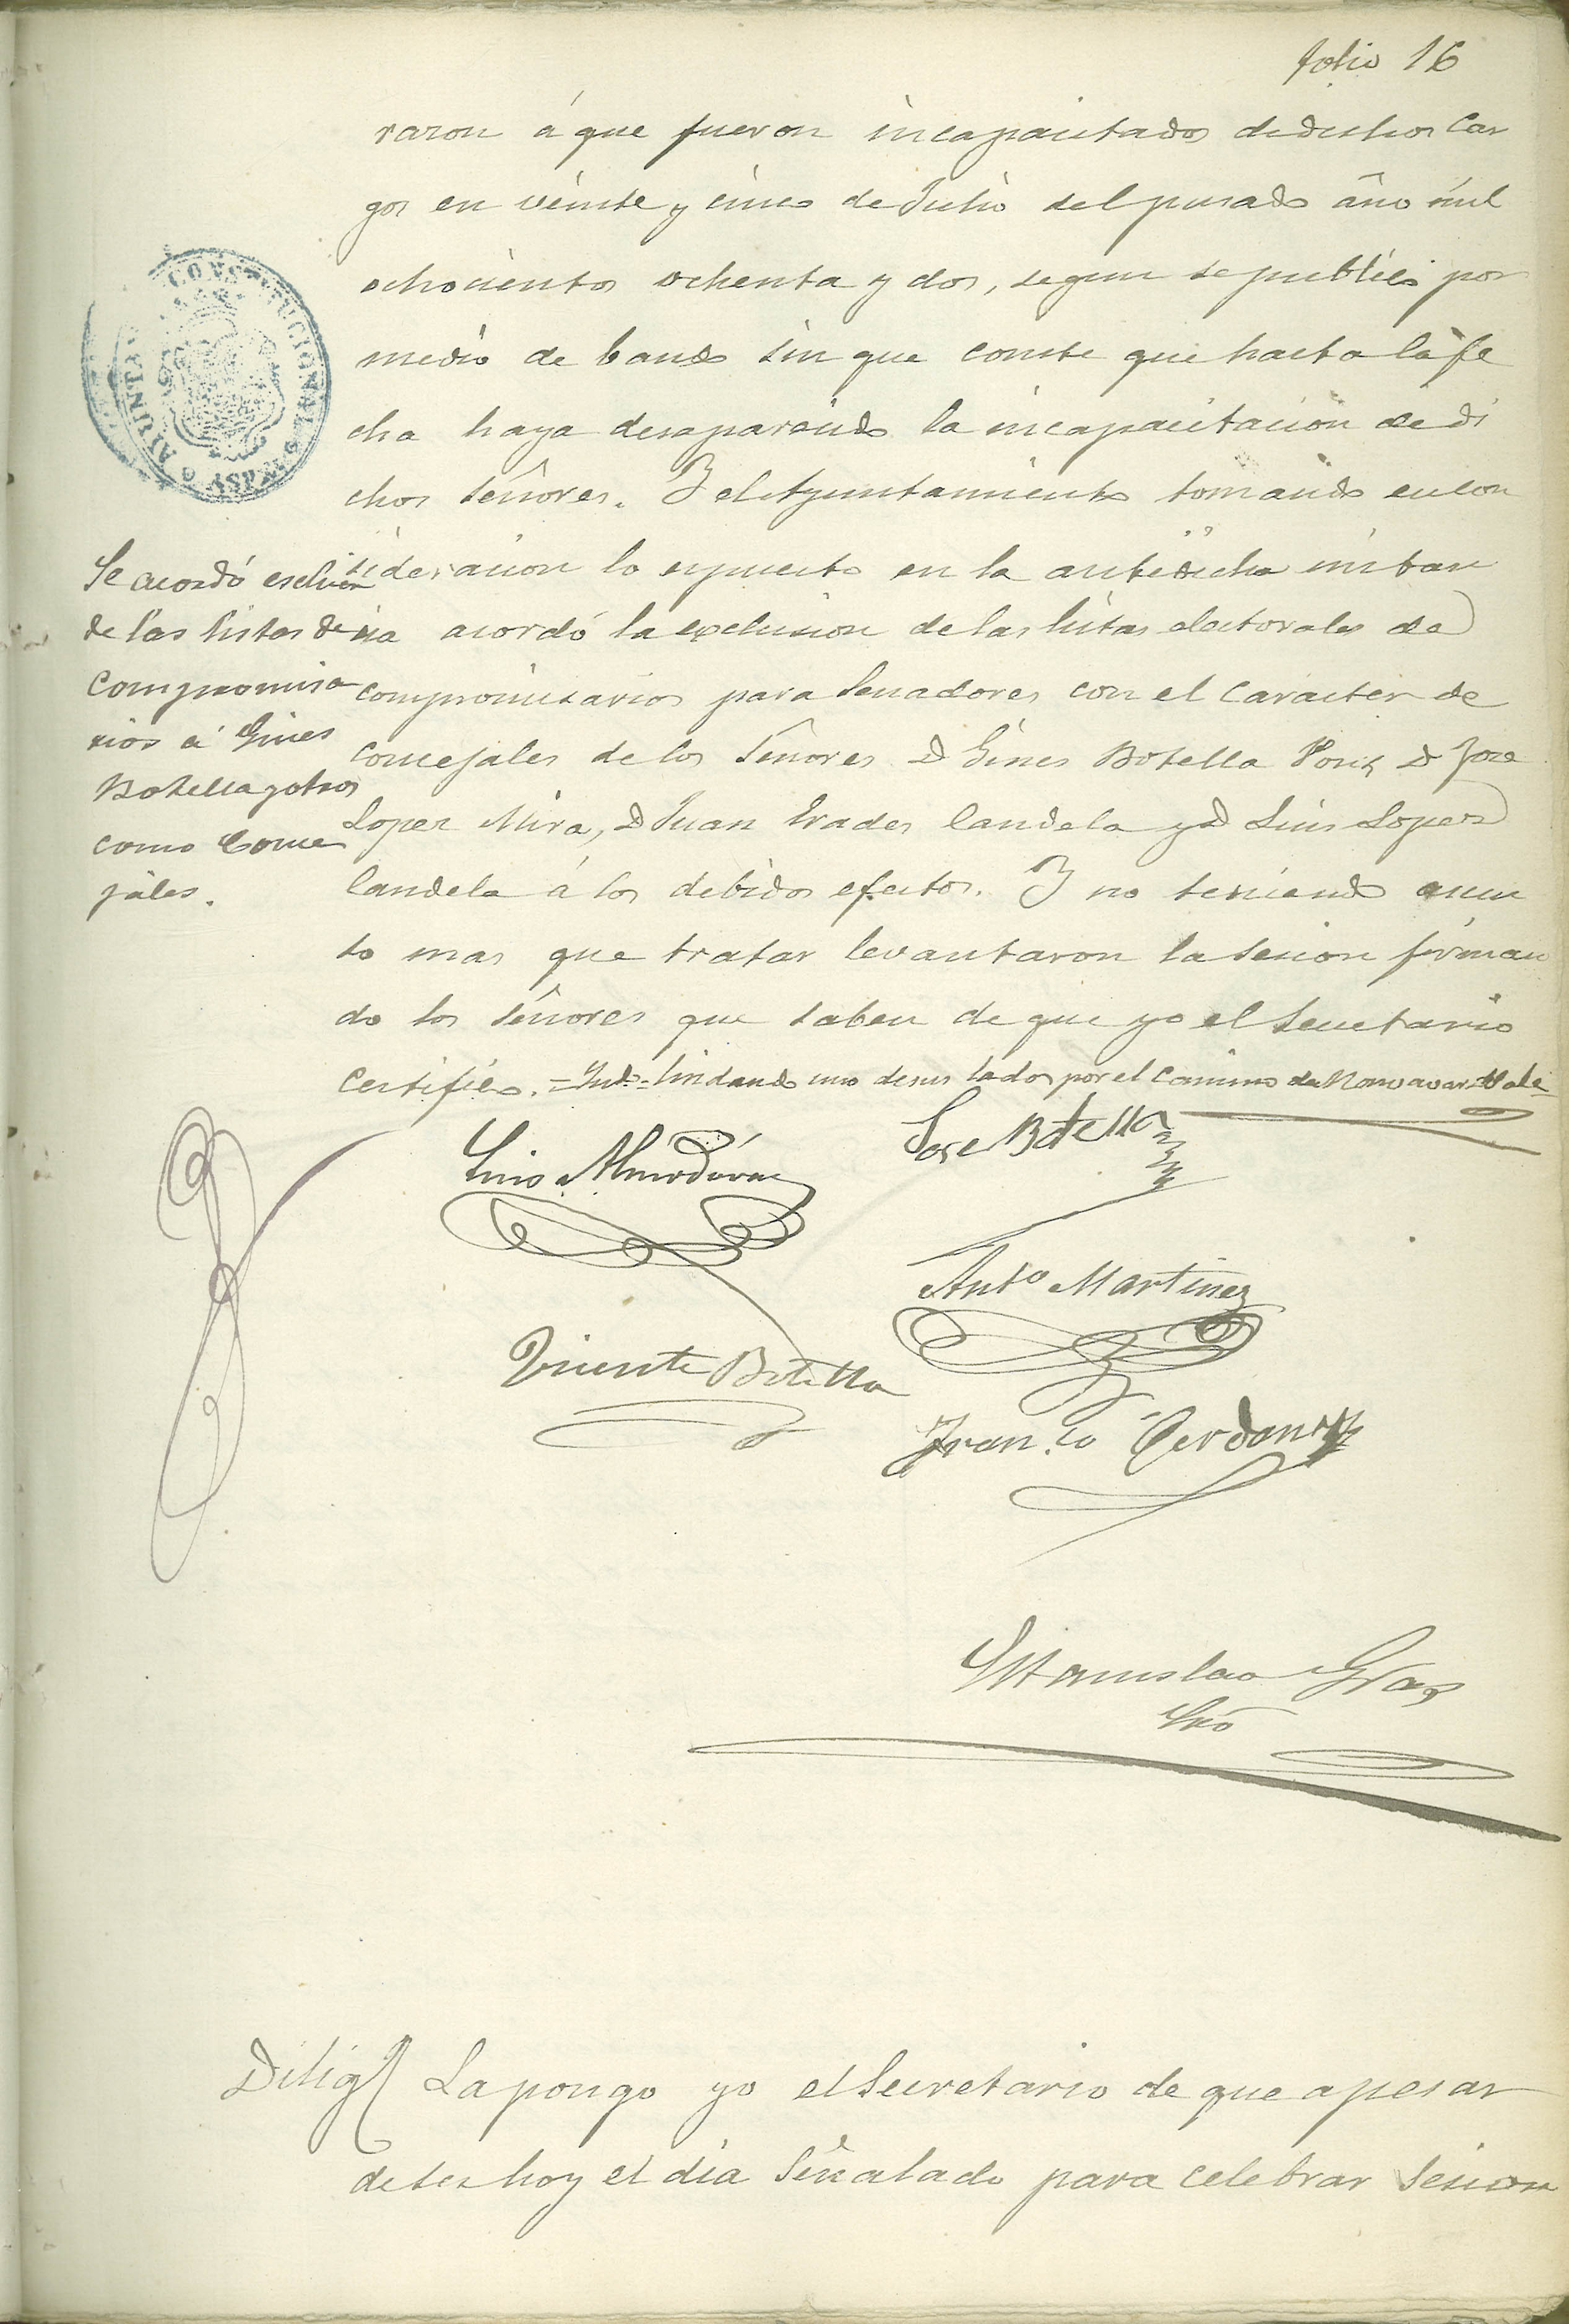 folio 16
razon á que fueron incapacitados de dichos Car
gos en veinte y cinco de Julio del pasado año mil
ochocientos ochenta y dos, segun se publicó por
medio de bando sin que conste que hasta la fe
cha haya desaparecido la incapacitacion de di
chos señores. Y el Ayuntamiento tomando en con
sideracion lo espuesto en la antedicha instan
cia acordó la exclusion de las listas electorales de
compromisarios para Senadores con el caracter de
concejales de los Señores D Gines Botella Pons, D Jose
Lopez Mira, D Juan Prades Candela y D Luis Lopez
Candela á los debidos efectos. Y no teniendo asun
to mas que tratar levantaron la sesion firman
do los señores que saben de que yo el Secretario
Certifico. = Indo = lindando uno de sus lados por el Camino de = Vale =
CONSTITUCIONAL
ASPE
Se acordó escluir
de las listas de
Compromisa
rios á Gines
Botella y otros
como Conce
jales.
Luis Almodóvar
Jose Botella
Anto Martinez
Vicente Botella
Franco Cerdan
Estanislao Gras
Srio
Dilig La pongo yo el Secretario de que apesar
de ser hoy el dia señalado para celebrar sesion